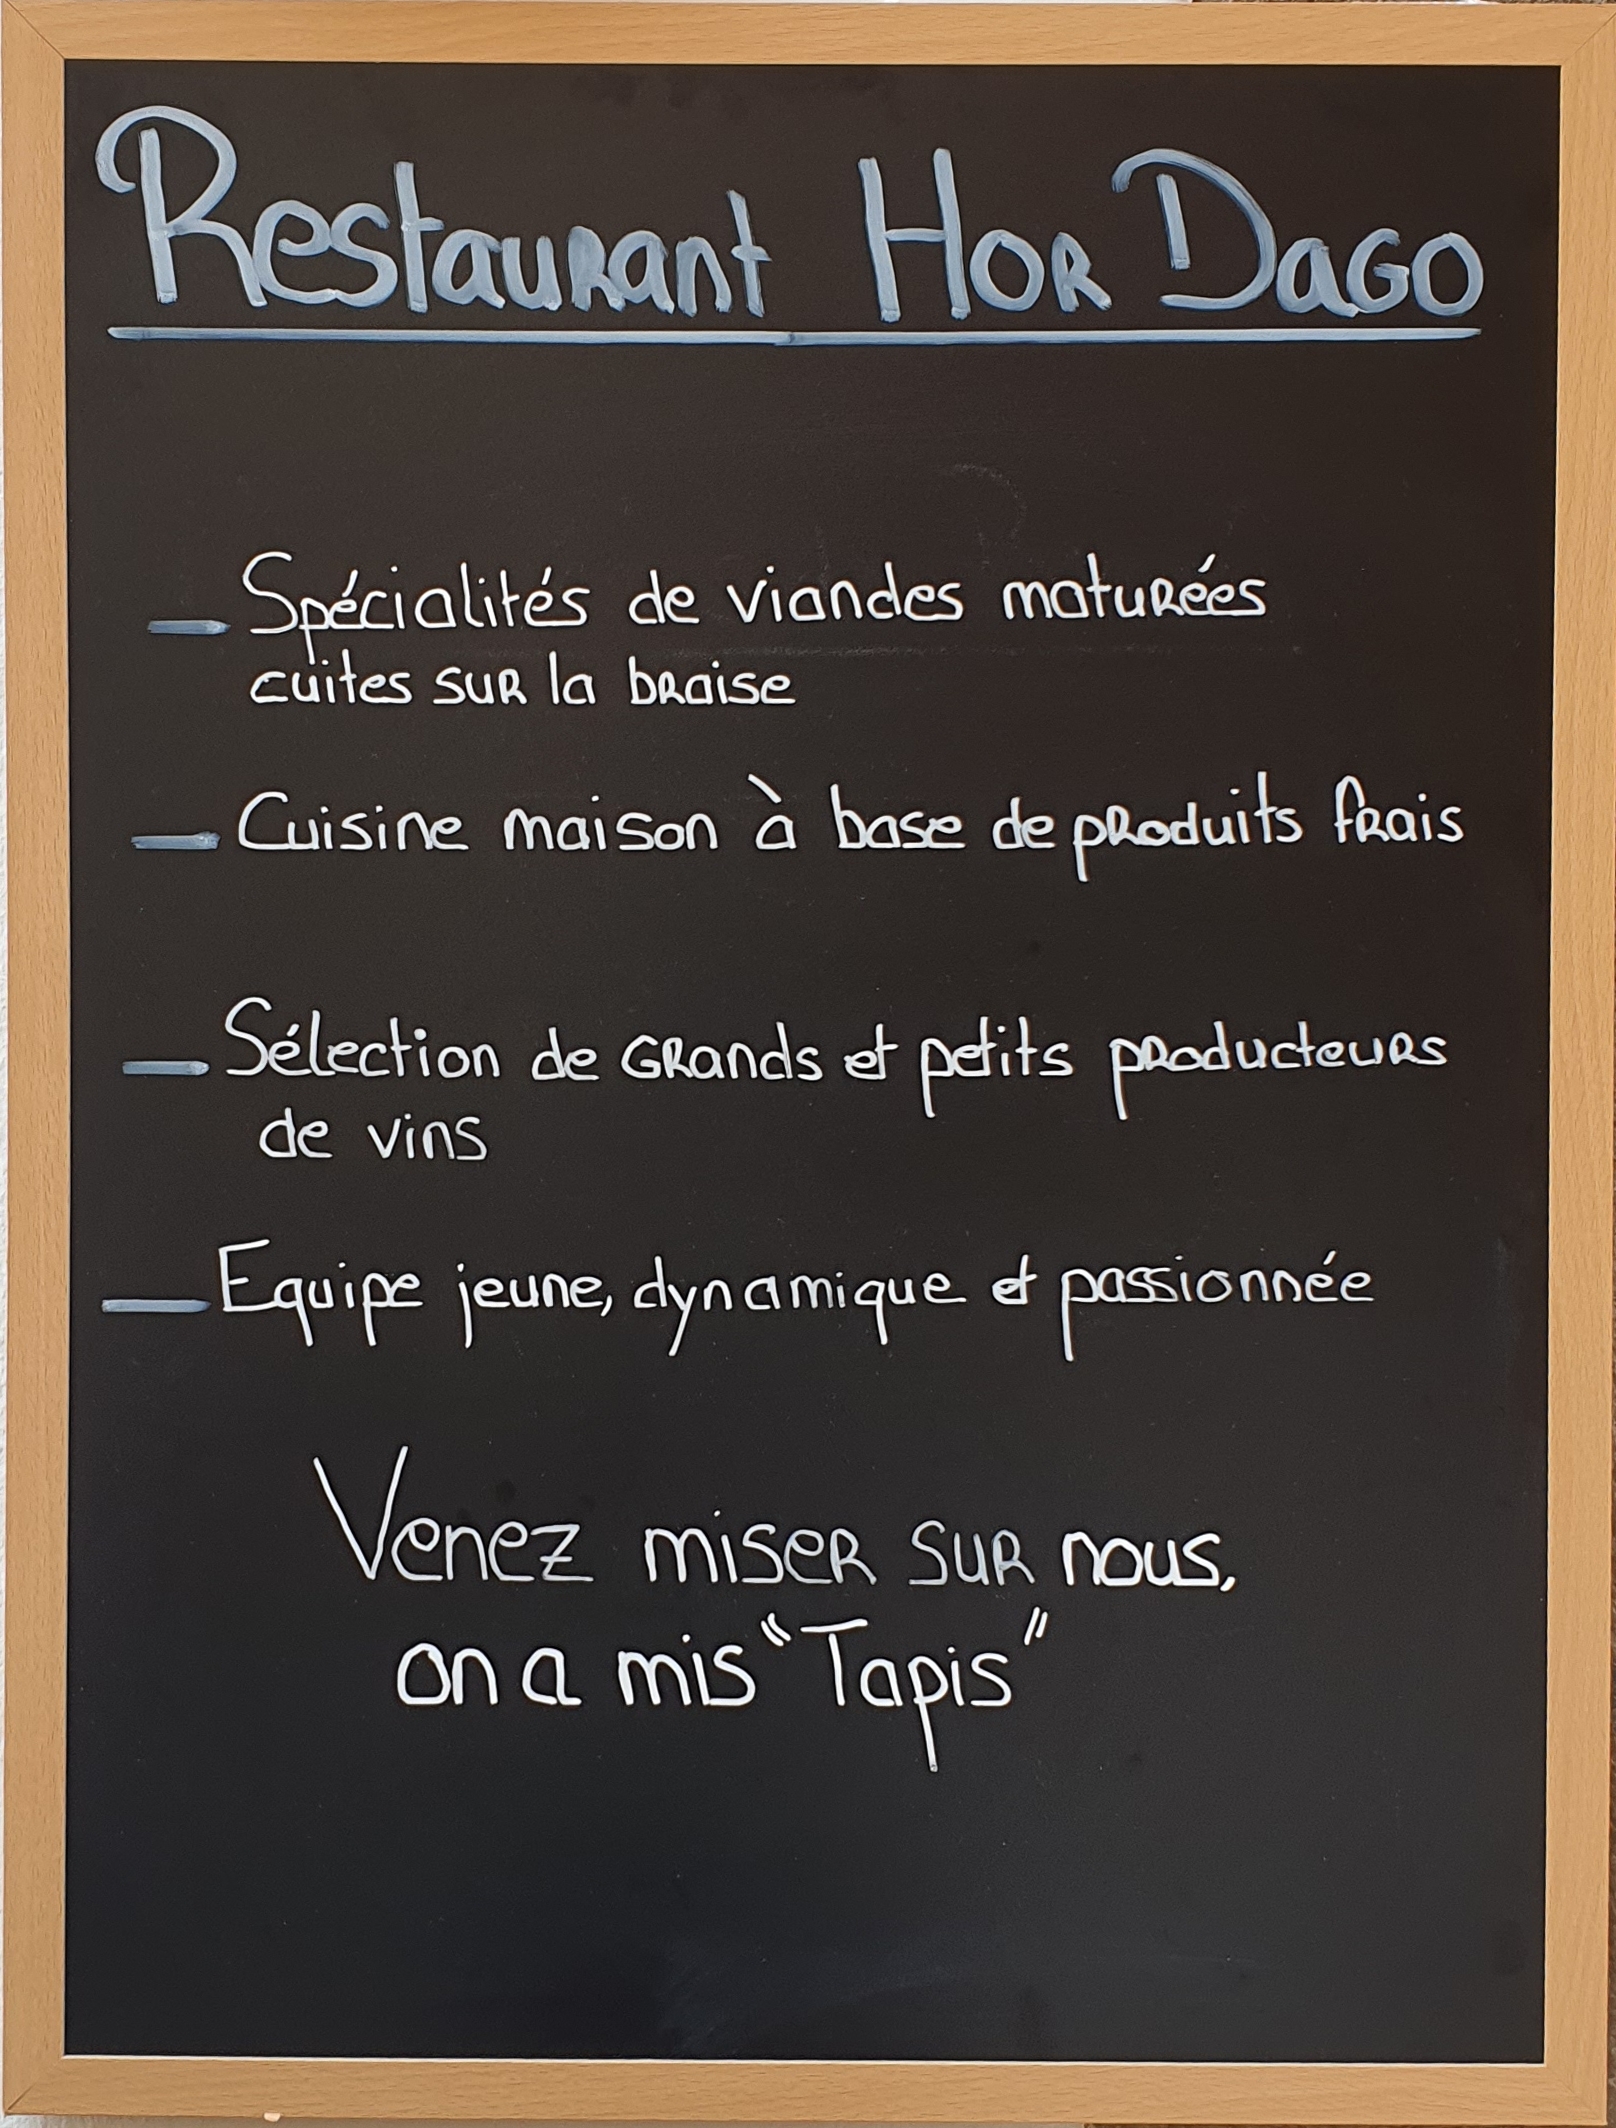 Restaurant Hor Dago
- Spécialités de viandes maturées
cuites sur la braise
- Cuisine maison à base de produits frais
- Sélection de Grands et petits producteurs
de vins
- Equipe jeune, dynamique et passionnée
Venez miser sur nous,
on a mis "Tapis"